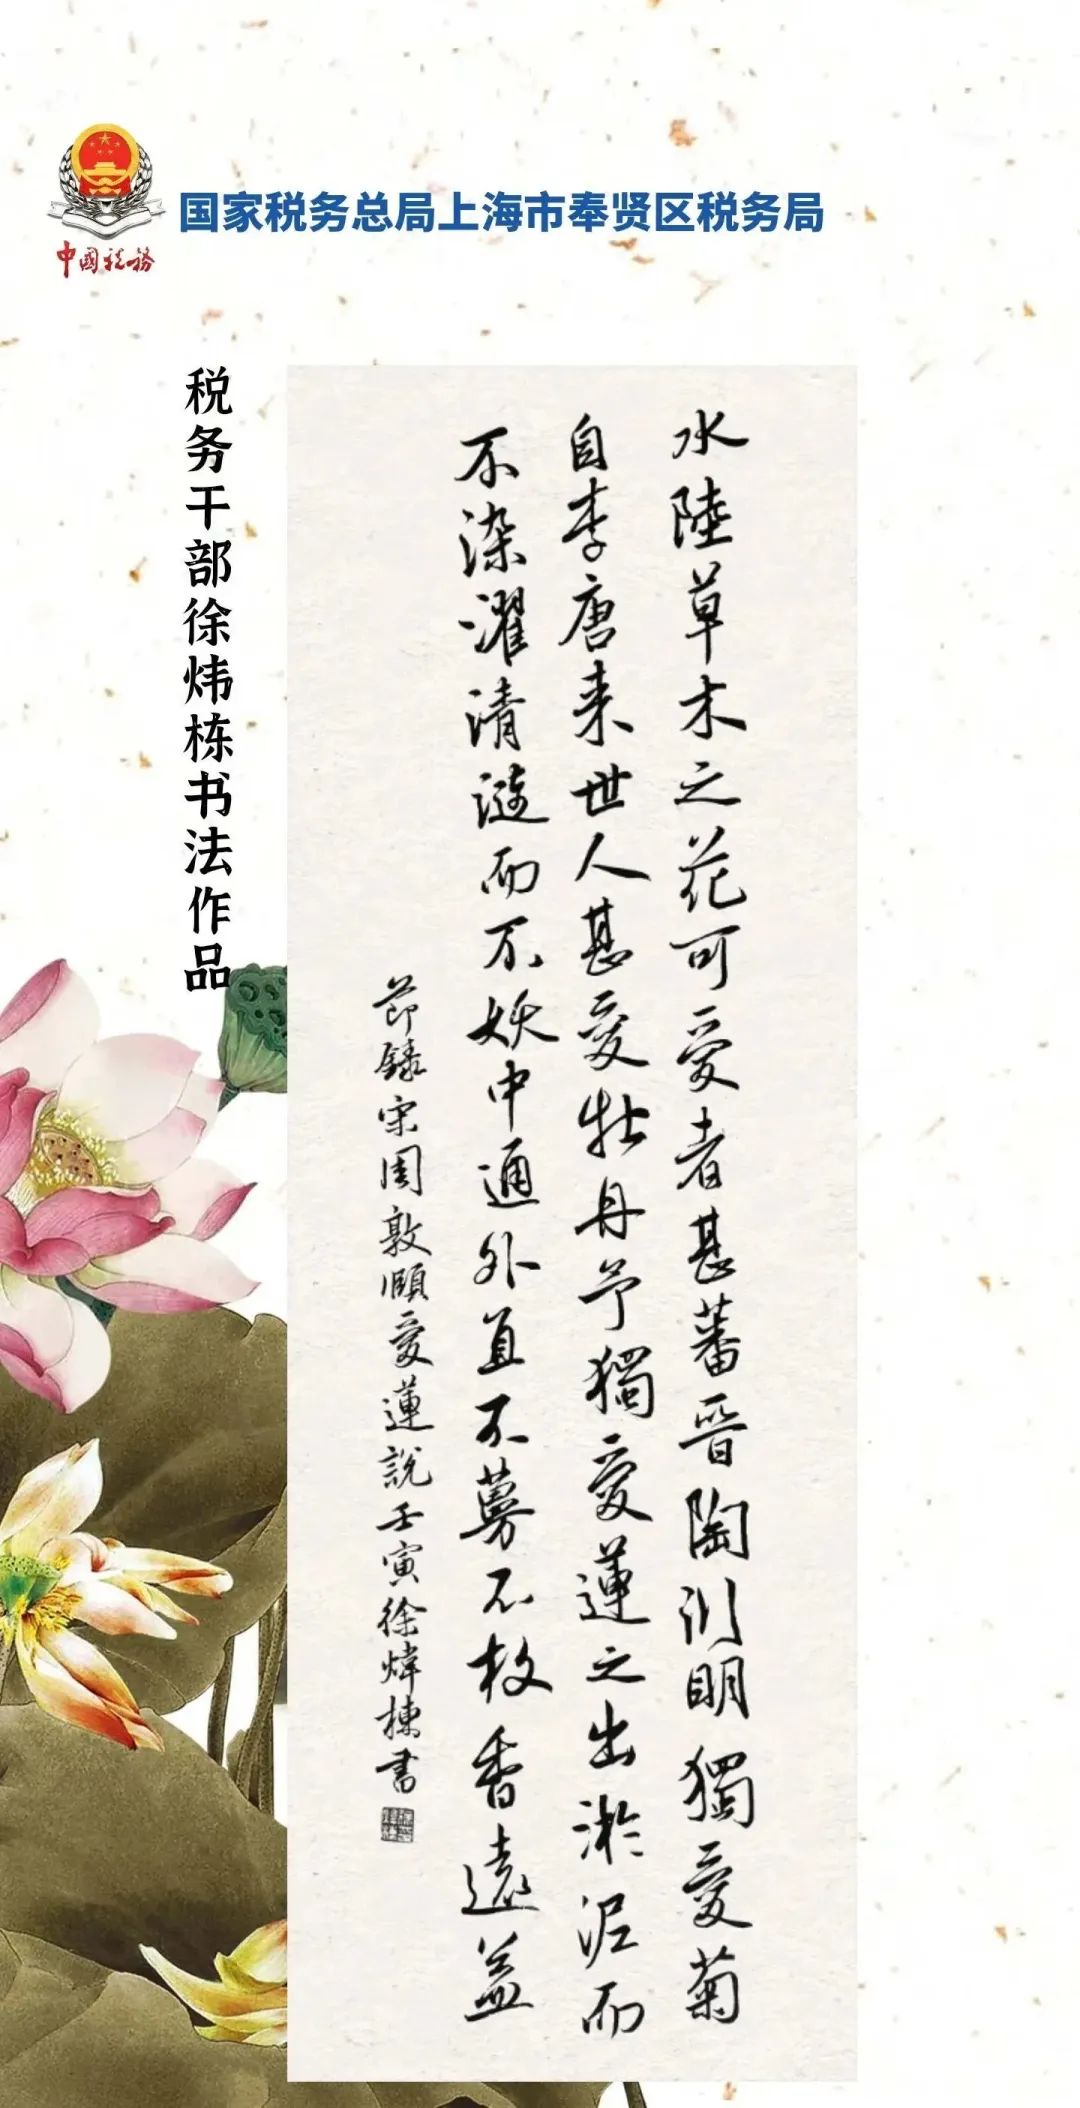 国家税务总局上海市奉贤区税务局
中国税務
税务干部徐炜栋书法作品
水陸草木之花可愛者甚蕃晉陶渊明獨愛菊
自李唐来世人甚愛牡丹予獨愛蓮之出淤泥而
不染濯清漣而不妖中通外直不蔓不枝香遠益
節錄宋周敦頤愛蓮說壬寅徐煒棟書